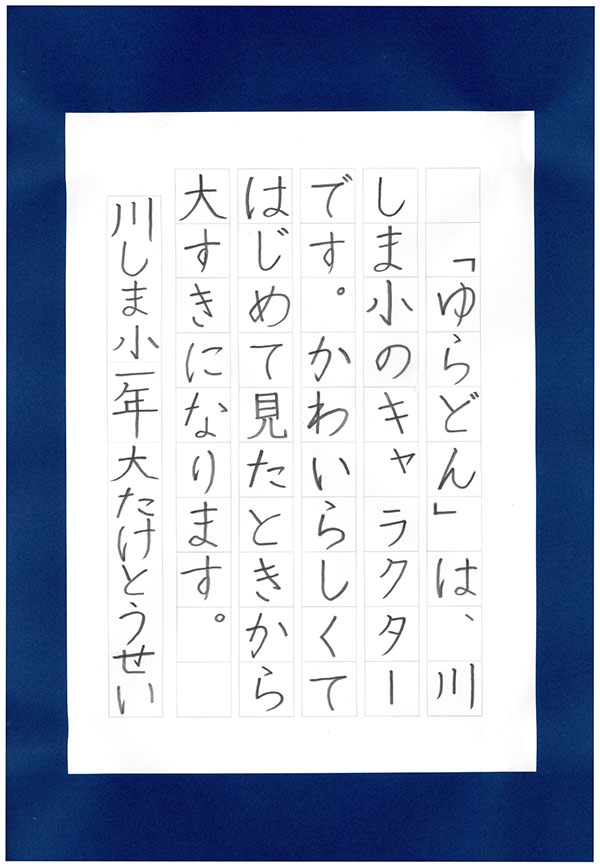 「ゆらどん」は、川
しま小のキャラクター
です。かわいらしくて
はじめて見たときから
大すきになります。
川しま小一年大たけとうせい